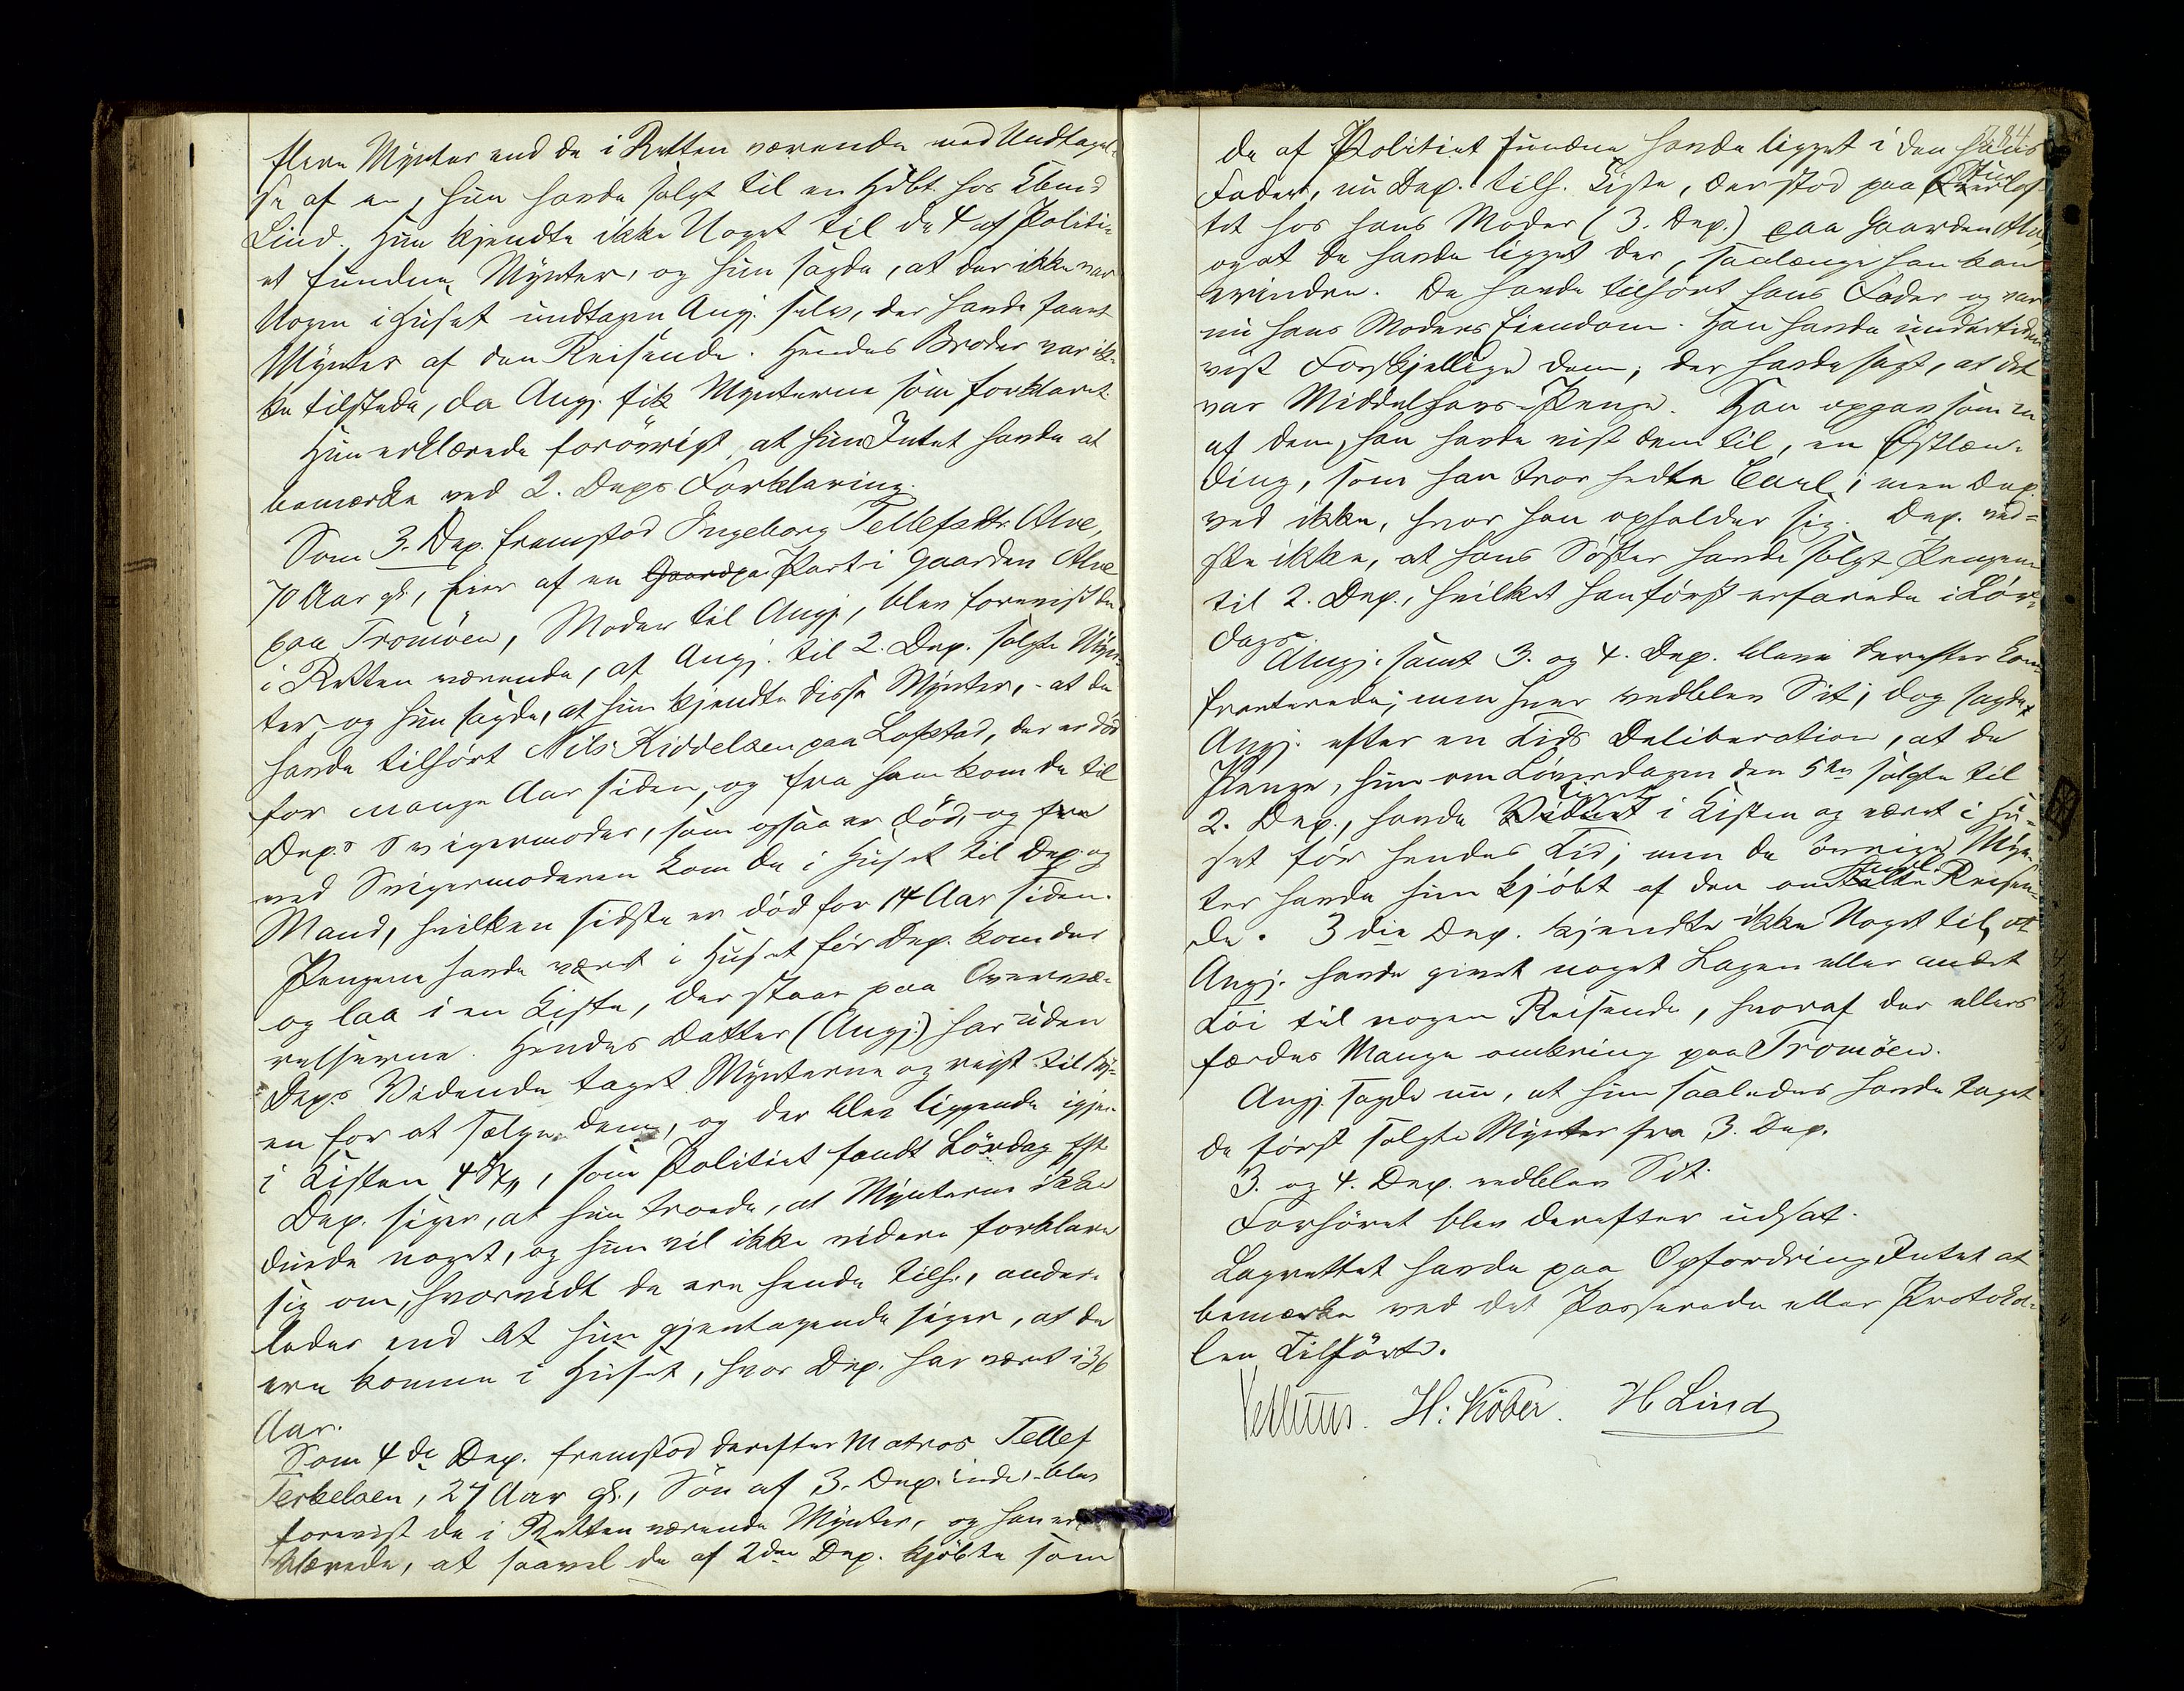 flere Mynter end de i Retten værende med Undtagel-
se af en, hun havde solgt til en Hdbt. hos Ebend
Lind. Hun kjendte ikke Noget til de 4 af Politi-
et fundne Mynter, og hun sagde, at der ikke var
Nogen i Huset undtagen Angj. selv, der havde faaet
Mynter af den Reisende. Hendes Broder var ik-
ke tilstede, da Angj. fik Mynterne som forklaret.
Hun erklærede forøvrigt, at hun Intet havde at
bemærke ved 2. Deps Forklaring.
Som 3. Dep. fremstod Ingeborg Tellefsdtr. Alve,
70 Aar gl., Eier af en Gaardpa Part i Gaarden Alve
paa Tromøen, Moder til Angj., blev forevist de
i Retten værende, af Angj. til 2. Dep. solgte Myn-
ter, og hun sagde, at hun kjendte disse Mynter, - at de
havde tilhørt Nils Kiddelsen paa Lofstad, der er død
for mange Aar siden, og fra ham kom de til
Dep.s Svigermoder, som ogsaa er død, og fra
ved Svigermoderen kom de i Huset til Dep. og
Mand, hvilken sidste er død for 14 Aar siden.
Pengene havde været i Huset før Dep. kom der
og laa i en Kiste, der staar paa Overvæ-
relserne. Hendes Datter (Angj.) har uden
Deps Vidende taget Mynterne og reist til By-
en for at sælge dem, og der blev liggende igjen
i Kisten 4 St., som Politiet fandt Lørdag Eft.
Dep. siger, at hun troede, at Mynterne ikke
duede noget, og hun vil ikke videre forklare
sig om, hvorvidt de ere hende tilh., ander-
ledes end at hun gjentagende siger, at de
ere komne i Huset, hvor Dep. har været i 36
Aar.
Som 4de Dep. fremstod derefter Matros Tellef
Terkelsen, 27 Aar gl., Søn af 3. Dep. inde, blev
forevist de i Retten værende Mynter, og han er-
klærede, at saavel de af 2den Dep. kjøbte som
784
de af Politiet fundne havde ligget i den hans
Stue
Fader, nu Dep. tilh. Kiste, der stod paa Overlof-
tet hos hans Moder (3. Dep.) paa Gaarden Alve,
og at de havde ligget der, saalænge han kan
erindre. De havde tilhørt hans Fader og var
nu hans Moders Eiendom. Han havde undertiden
vist Forskjellige dem, der havde sagt, at det
var Middelhavs-Penge. Han opgav som en
af dem, han havde vist dem til, en Østlæn-
ding, som han tror hedte Carl; men Dep.
ved ikke, hvor han opholder sig. Dep. vid-
ste ikke, at hans Søster havde solgt Pengene
til 2. Dep., hvilket han først erfarede i Lør-
dags.
Angj. samt 3. og 4. Dep. bleve derefter kon-
fronterede; men hver vedblev Sit; dog sagde
Angj. efter en Tids Deliberation, at de
Penge, hun om Løverdagen den 5te solgte til
ligget
2. Dep., havde Vidnet i Kisten og været i Hu-
set før hendes Tid; men de øvrige Myn-
ter havde hun kjøbt af den omtalte Reisen-
de. 3die Dep. kjendte ikke Noget til, at
Angj. havde givet noget Lagen eller andet
Tøi til nogen Reisende, hvoraf der ellers
færdes Mange omkring paa Tromøen.
Angj. sagde nu, at hun saaledes havde taget
de først solgte Mynter fra 3. Dep.
3. og 4. Dep. vedblev Sit.
Forhøret blev derefter udsat.
Lagrettet havde paa Opfordring Intet at
bemærke ved det Passerede eller Protokol-
len Tilførte.
H: Køber. H Lind